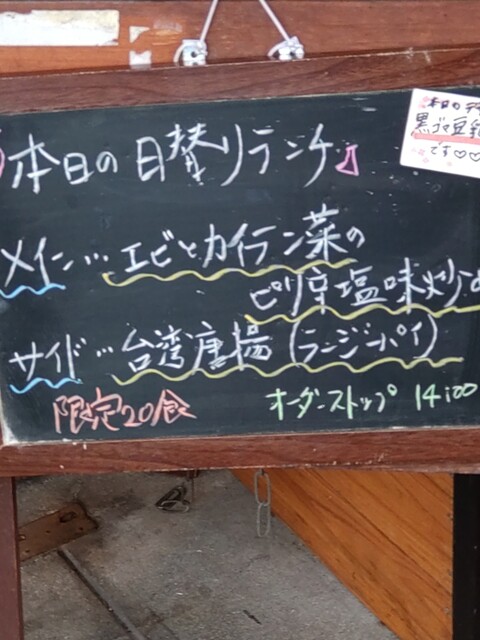 本日の日替りランチ
本日のデザ
黒ゴマ豆乳
です♡♡
メイン…エビとカイラン菜の
ピリ辛塩味炒め
サイド…台湾唐揚(ラージーパイ)
限定20食
オーダーストップ 14:00